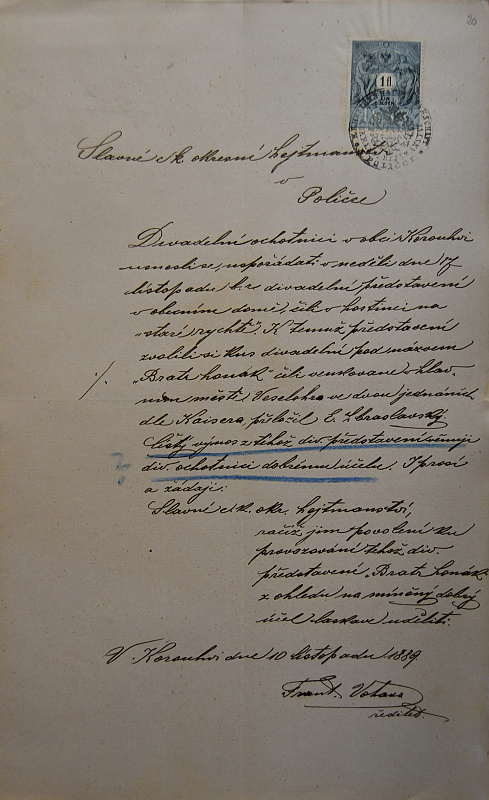 20
10
Slavné c. k. okresní hejtmanství
v
Poličce
Divadelní ochotníci v obci Korouhvi
usnesli se, uspořádati v neděli dne 17
listopadu b. r. divadelní představení
v obecním domě, čili v hostinci na
„staré rychtě“. K temuž představení
zvolili si kus divadelní pod názvem
„Bratr honák“ čili venkované v hlav-
ním městě. Veselohra ve dvou jednáních
dle Kaisera, přeložil E. Zbraslavský.
Čistý výnos z téhož div. představení věnují
div. ochotníci dobrému účelu. I prosí
a žádají:
Slavné c. k. okr. hejtmanství,
račiž jim povolení ku
provozování téhož div.
představení „Bratr honák“
z ohledu na míněný dobrý
účel laskavě uděliti.
V Korouhvi dne 10 listopadu 1889.
Frant. Votava
ředitel.